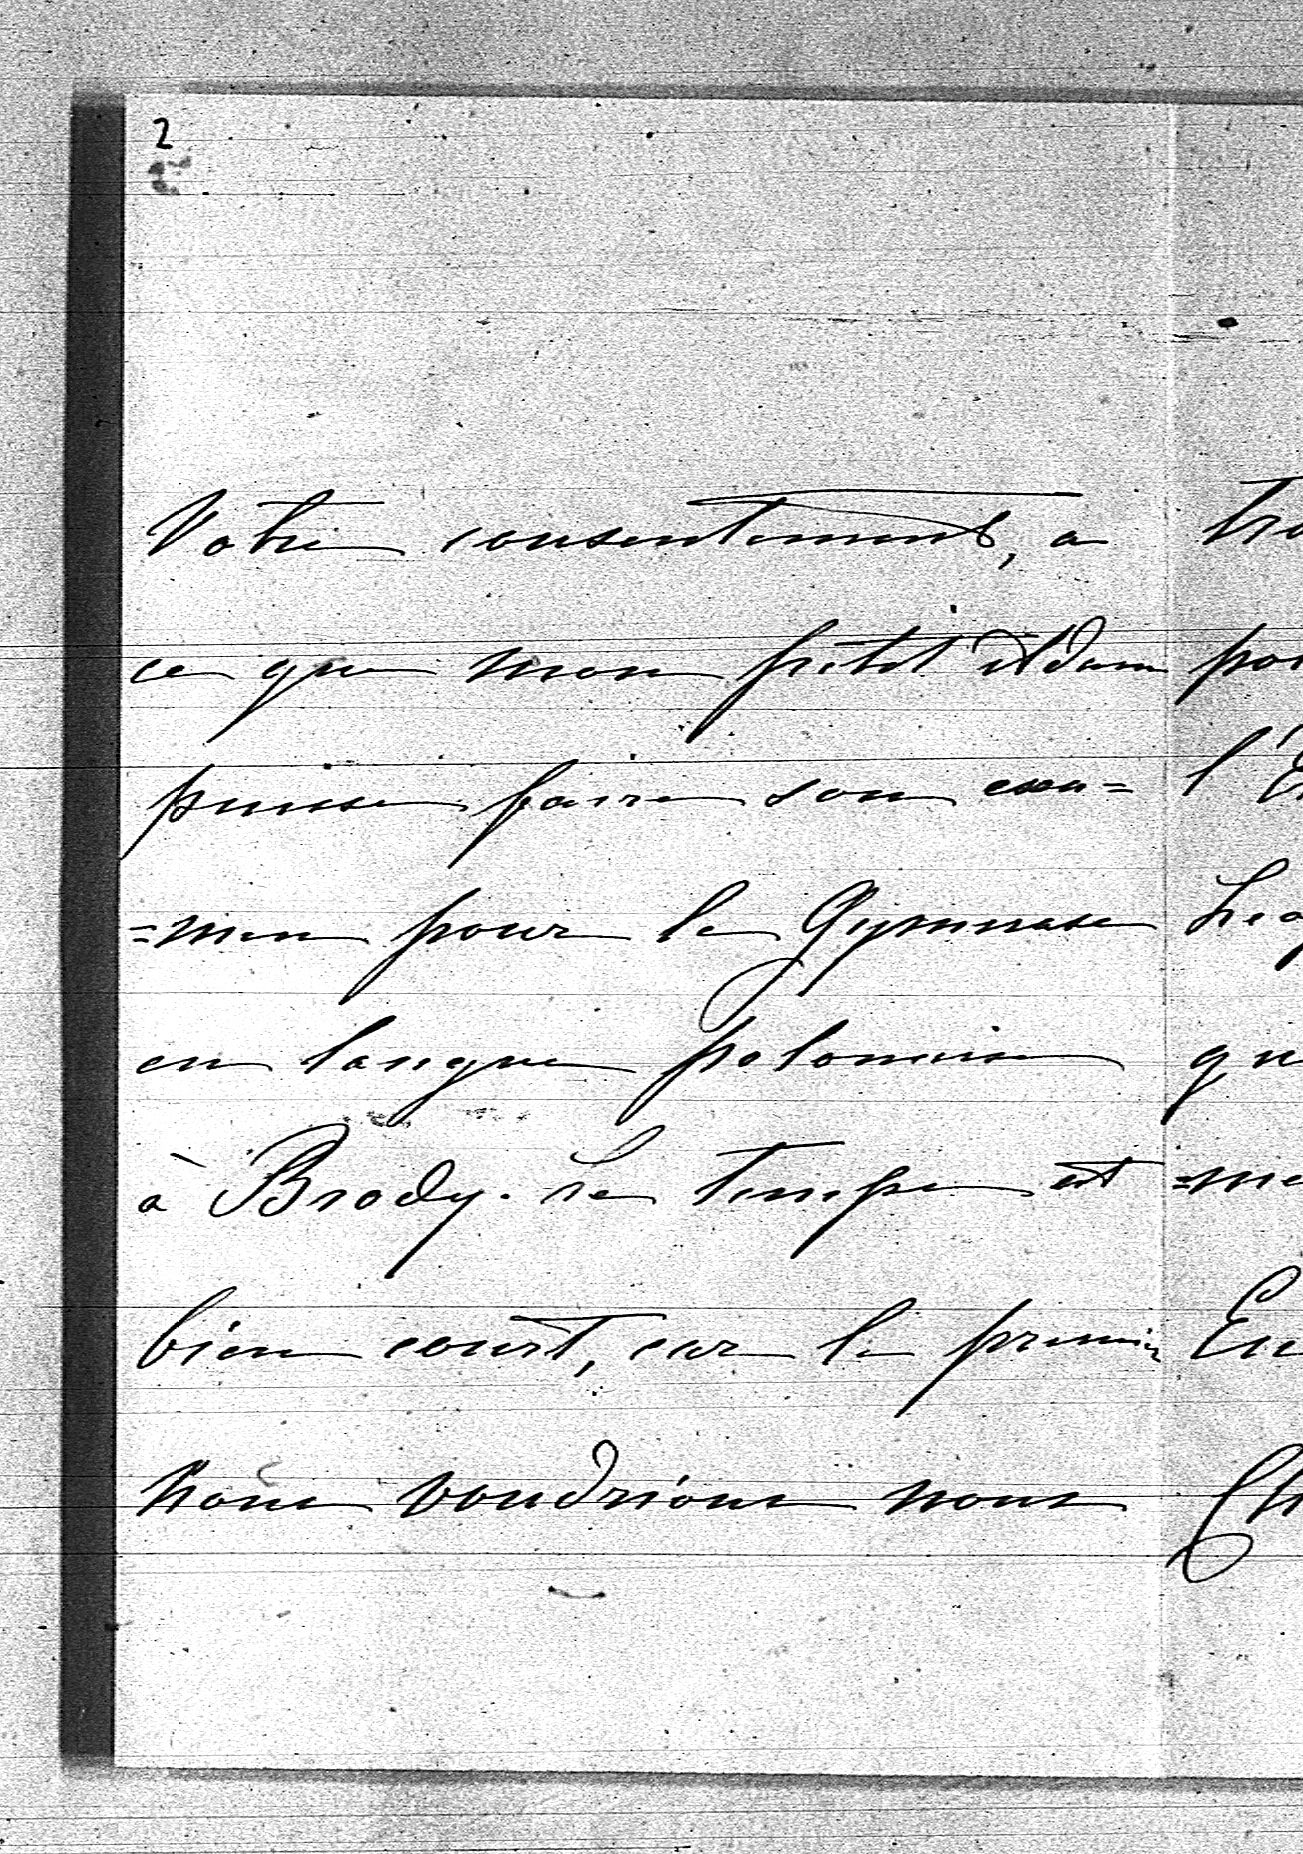 2
Votre consentement, a
ce que mon petit Adam
puisse faire son exa=
=men pour le Gymnase
en langue polonaise
à Brody. Le temps est
bien court, car le premier
Nous voudrions nous